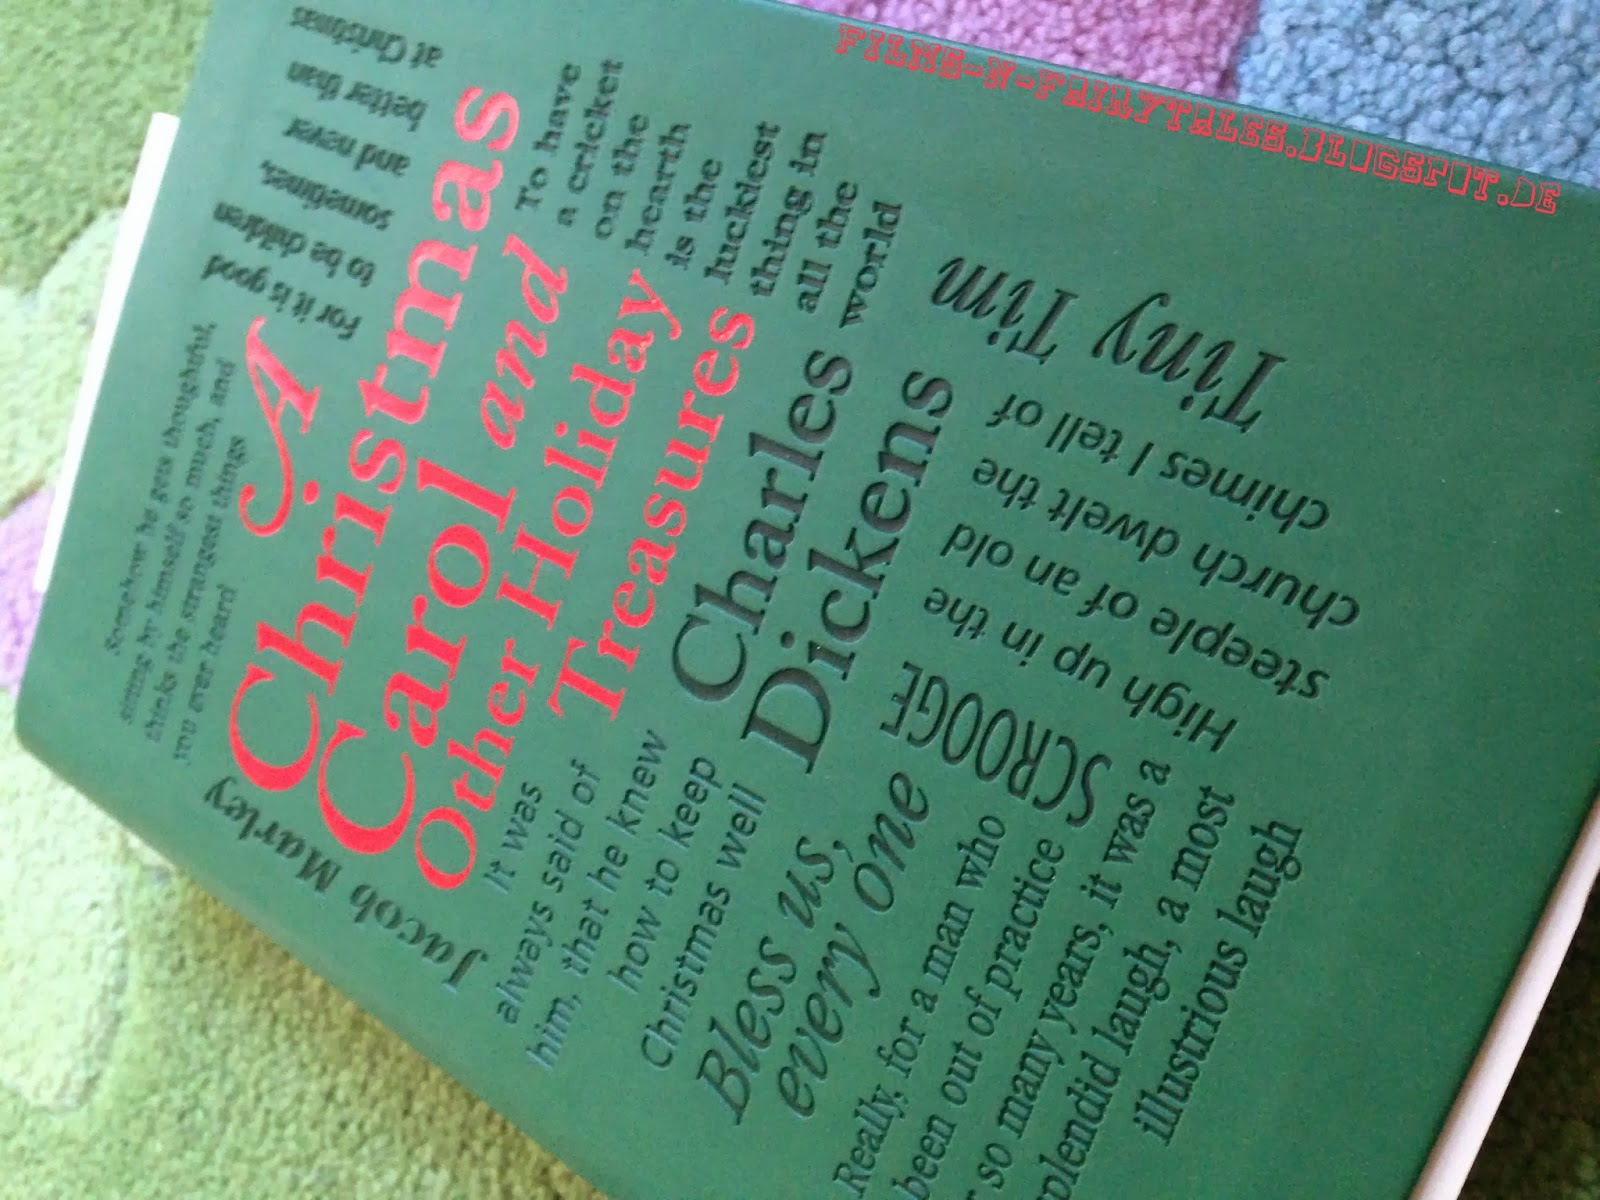 FILMS-N-FAIRYTALES.BLOGSPOT.DE
Somehow he gets thoughtful,
sitting by himself so much, and
thinks the strangest things
you ever heard
For it is good
to be children
sometimes,
and never
better than
at Christmas
Jacob Marley
A
Christmas
Carol and
Other Holiday
Treasures
To have
a cricket
on the
hearth
is the
luckiest
thing in
all the
world
It was
always said of
him, that he knew
how to keep
Christmas well
Charles
Dickens
Bless us,
every one
SCROOGE
High up in the
steeple of an old
church dwelt the
chimes I tell of
Tiny Tim
Really, for a man who
been out of practice
so many years, it was a
plendid laugh, a most
illustrious laugh